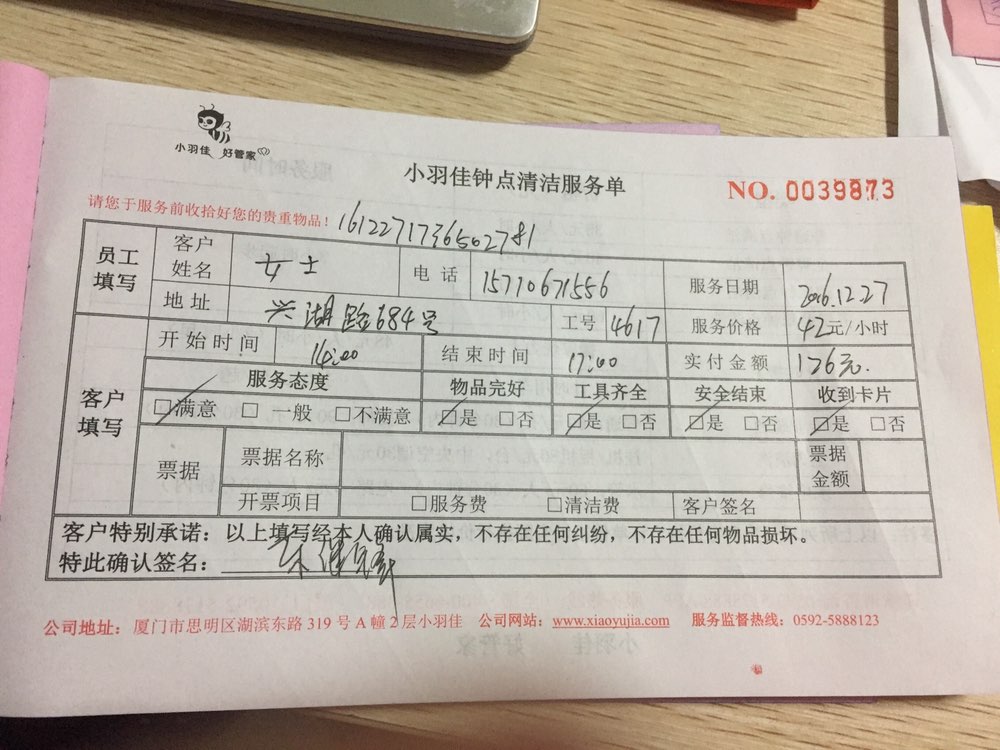 小羽佳 好管家
小羽佳钟点清洁服务单
NO. 0039873
请您于服务前收拾好您的贵重物品!
员工填写 客户姓名 女士 电话 15710671556 服务日期 2016.12.27
地址 兴湖路684号 工号 4617 服务价格 42元/小时
客户填写 开始时间 14:00 结束时间 17:00 实付金额 126元.
服务态度 物品完好 工具齐全 安全结束 收到卡片
☑满意 □一般 □不满意 ☑是 □否 ☑是 □否 ☑是 □否 ☑是 □否
票据 票据名称 票据金额
开票项目 □服务费 □清洁费 客户签名
客户特别承诺:以上填写经本人确认属实,不存在任何纠纷,不存在任何物品损坏。
特此确认签名:
公司地址:厦门市思明区湖滨东路 319 号 A 幢 2 层小羽佳 公司网站:www.xiaoyujia.com 服务监督热线:0592-5888123